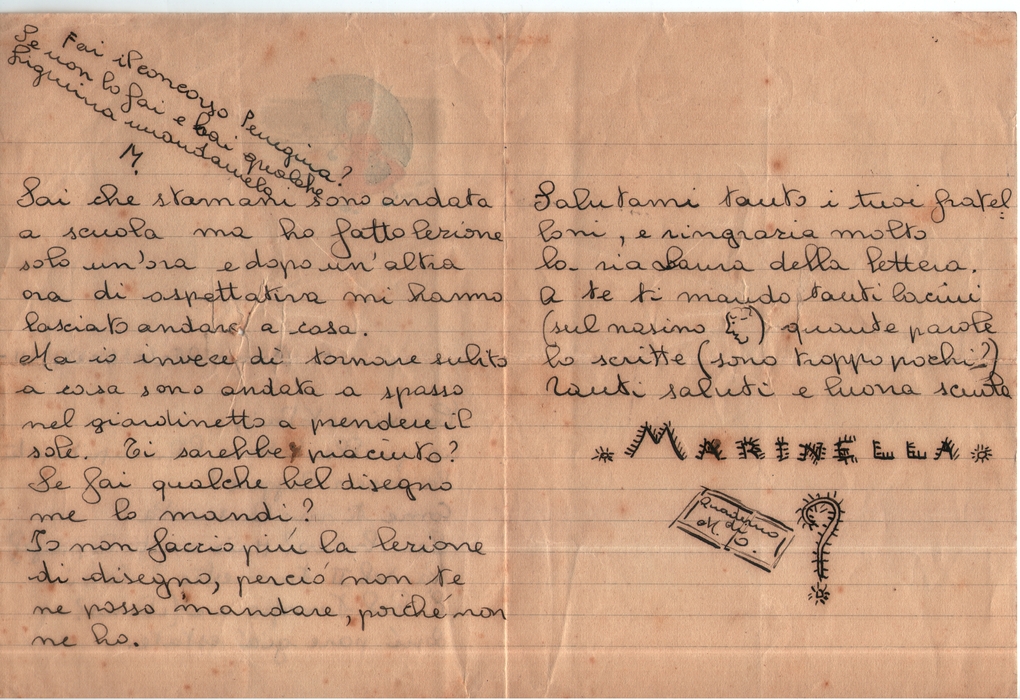 Fai il concorso Perugina?
Se non lo fai e hai qualche
figurina mandamela
M.
Sai che stamani sono andata
a scuola ma ho fatto lezione
solo un'ora e dopo un'altra
ora di aspettativa mi hanno
lasciato andare a casa.
Ma io invece di tornare subito
a casa sono andata a spasso
nel giardinetto a prendere il
sole. Ti sarebbe piaciuto?
Se fai qualche bel disegno
me lo mandi?
Io non faccio più la lezione
di disegno, perció non te
ne posso mandare, poiché non
ne ho.
Salutami tanto i tuoi fratel
loni, e ringrazia molto
la zia Laura della lettera.
A te ti mando tanti bacini
(sul nasino) quante parole
ho scritte (sono troppo pochi?)
Tanti saluti e buona scuola
MARINELLA
Quaderno
di
M. P.
?